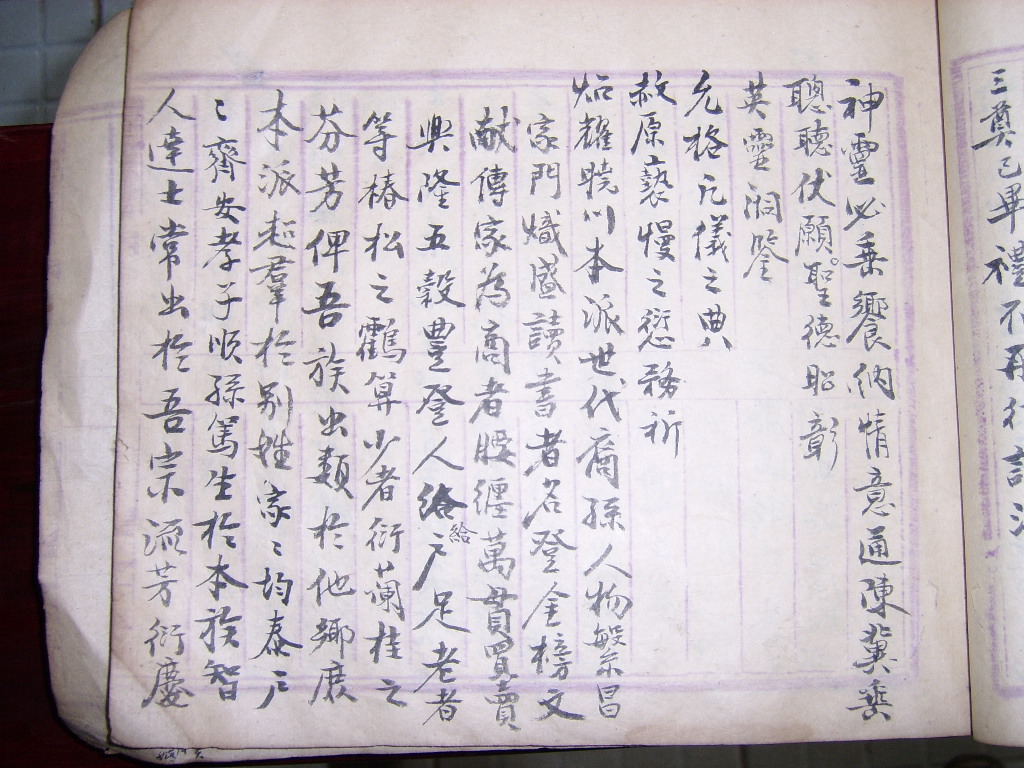 三奠已畢禮不再行
神靈必垂饗納情意通陳冀垂
聰聽伏願聖德昭彰
英靈洞鑒
允格元儀之典
赦原褻慢之愆務祈
炤耀曉川本派世代裔孫人物繁昌
家門熾盛讀書者名登金榜文
献傳家為商者腰纏萬貫買賣
興隆五穀豊登人給户足老者
給
等椿松之鶴算少者衍蘭桂之
芬芳俾吾族出類於他鄉庶
本派超羣於别姓家〻均泰户
〻齊安孝子順孫篤生於本族智
人達士常出於吾宗流芳衍慶